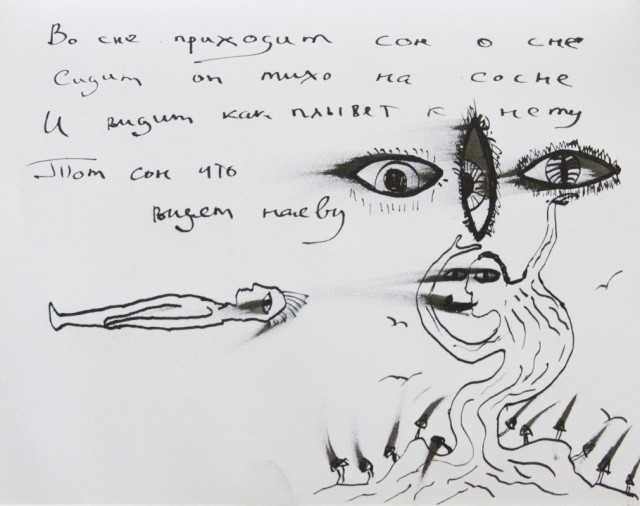 Во сне приходит сон о сне
Сидит он тихо на сосне
И видит как ПЛЫВЕТ к нему
Тот сон что
видет наеву